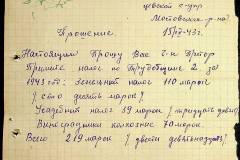 Мотовского р-на
15/IV-43г.
Прошение.
Настоящим Прошу Вас г-н
Примите налог по Трудовщине 2 за
1943 год: Земельный налог 110 марок
(сто десять марок)
Усадебный налог 39 марок (тридцать девять)
Виноградника колхозные 70 марок.
Всего 219 марок (двести девятьнадцать)